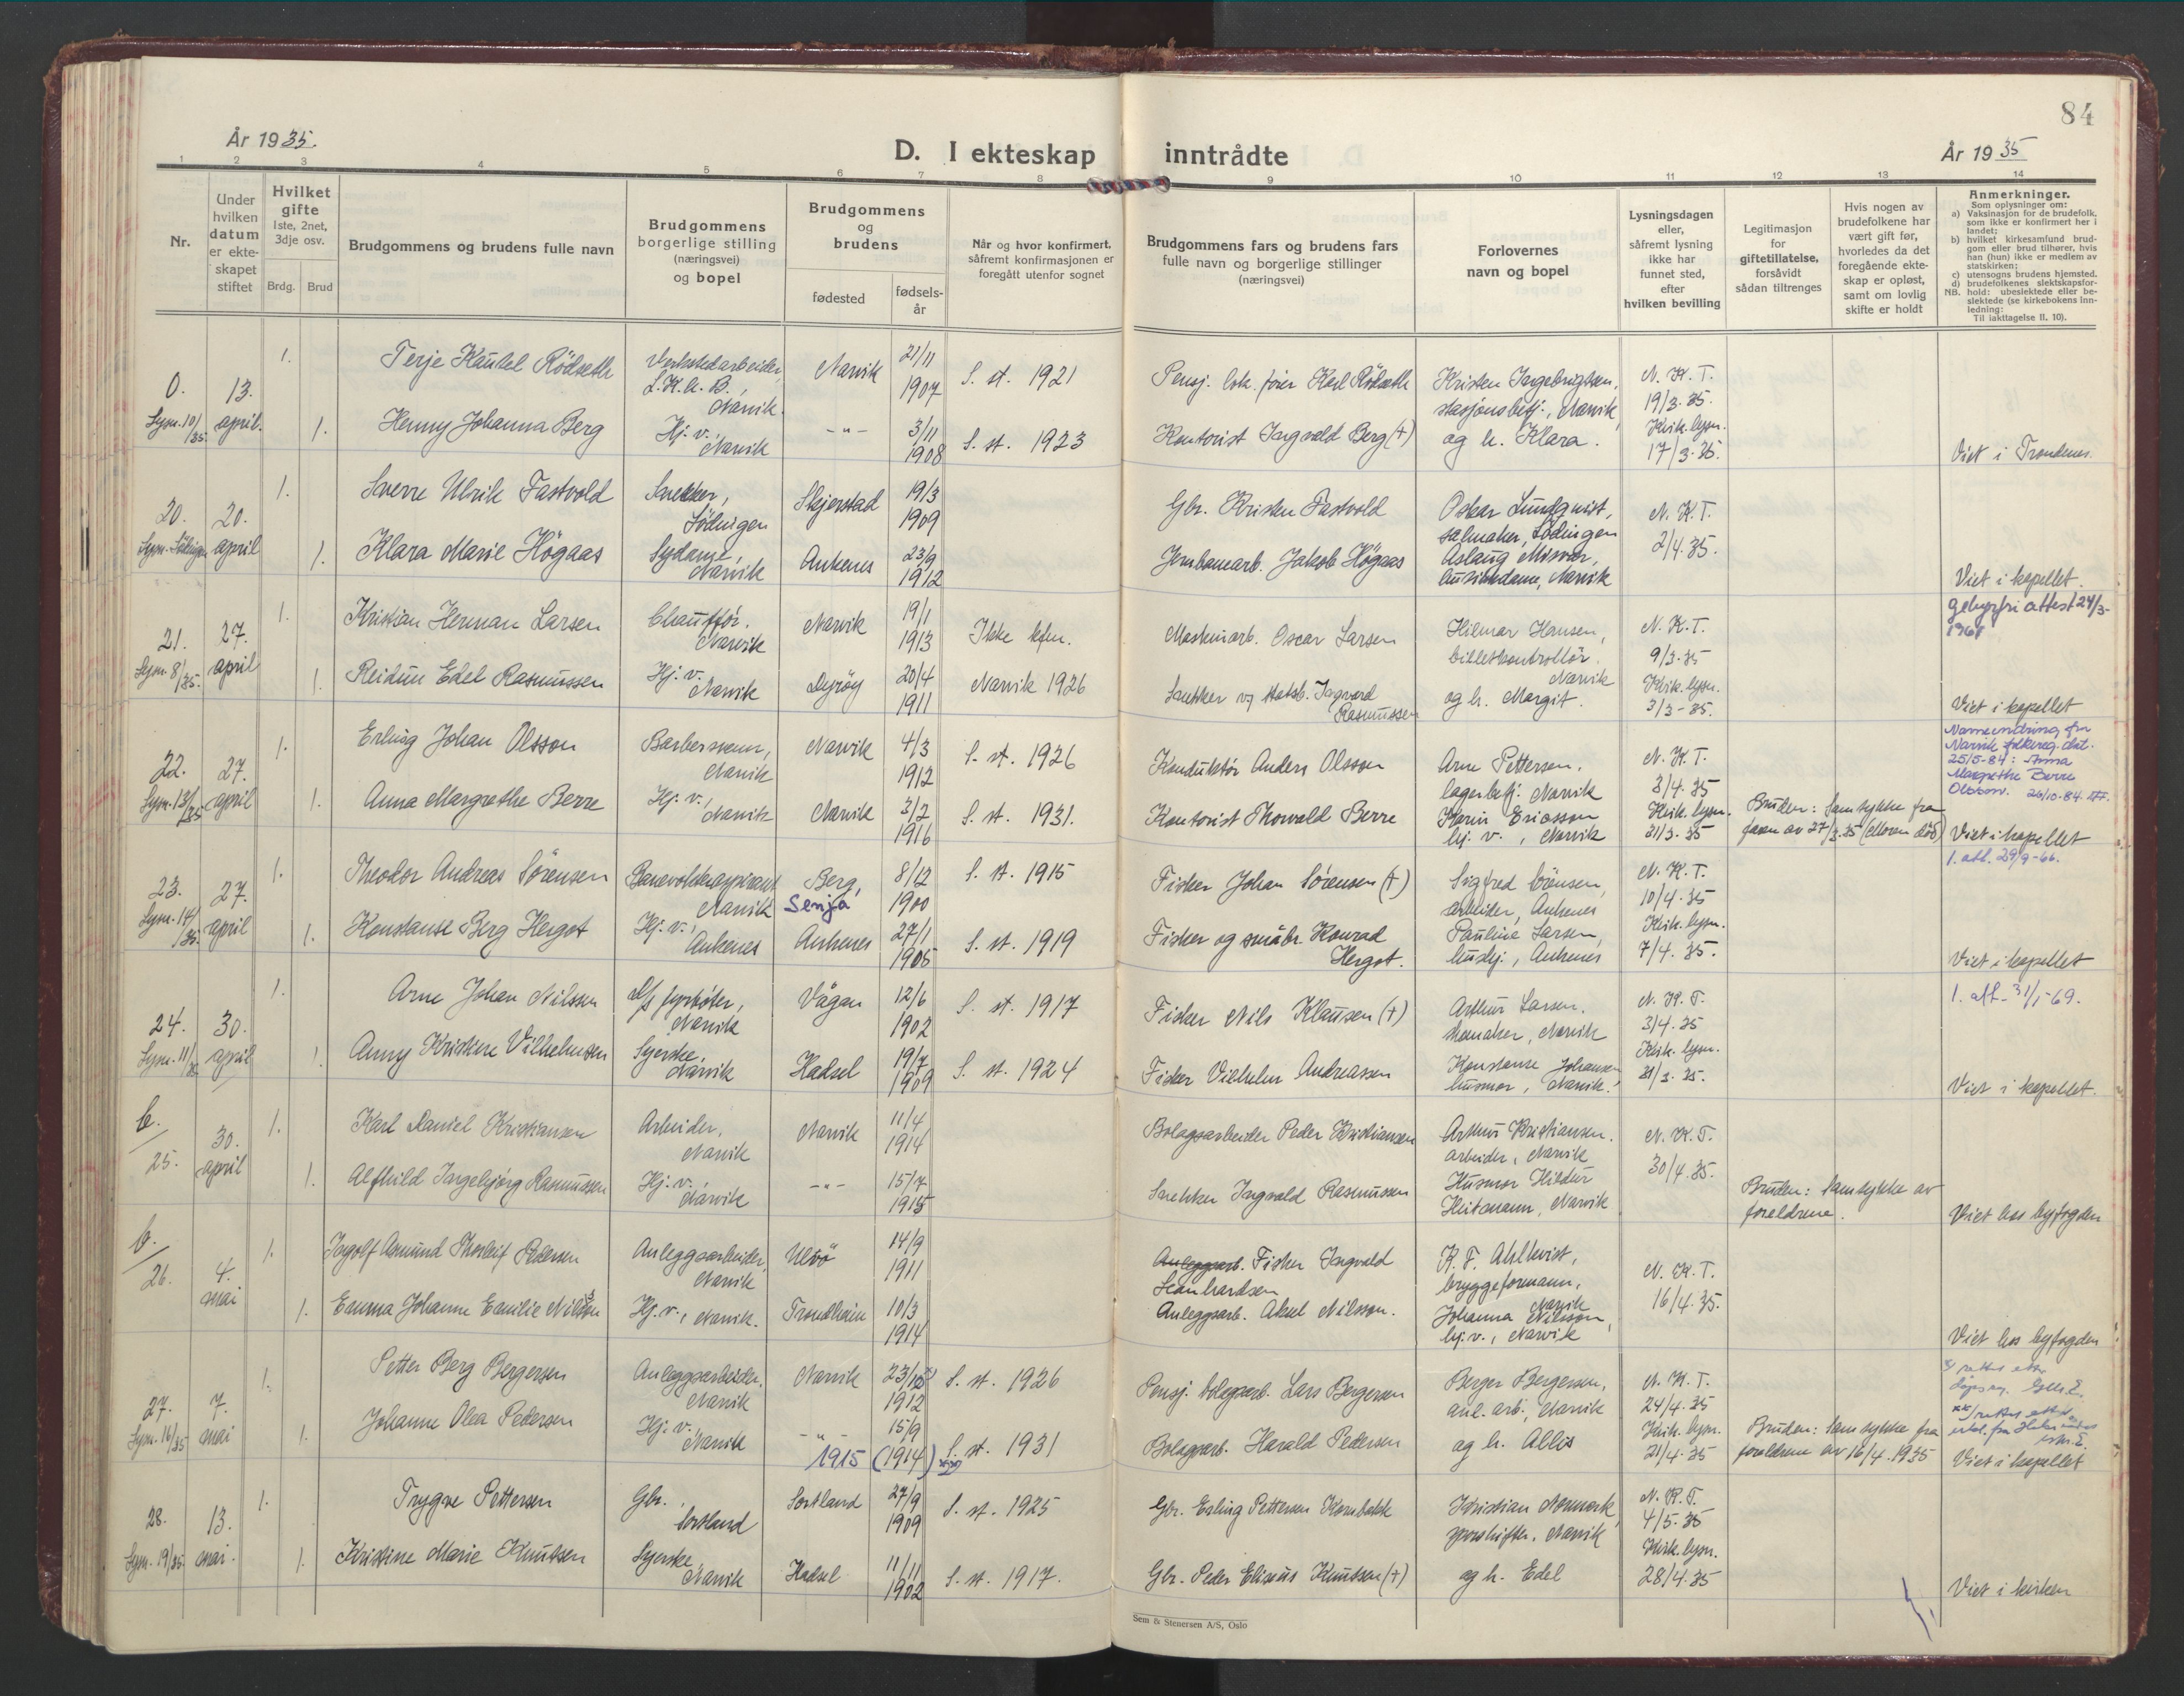 84
År 1935.
D. I ekteskap inntrådte
År 1935
1 2 3 4 5 6 7 8 9 10 11 12 13 14
Nr.
Under hvilken datum er ekteskapet stiftet
Hvilket gifte
Iste, 2net, 3dje osv.
Brdg. Brud
Brudgommens og brudens fulle navn
Brudgommens borgerlige stilling (næringsvei) og bopel
Brudgommens og brudens
fødested
fødselsår
Når og hvor konfirmert, såfremt konfirmasjonen er foregått utenfor sognet
Brudgommens fars og brudens fars fulle navn og borgerlige stillinger (næringsvei)
Forlovernes navn og bopel
Lysningsdagen eller, såfremt lysning ikke har funnet sted, efter hvilken bevilling
Legitimasjon for giftetillatelse, forsåvidt sådan tiltrenges
Hvis nogen av brudefolkene har vært gift før, hvorledes da det foregående ekteskap er opløst, samt om lovlig skifte er holdt
Anmerkninger.
Som oplysninger om:
a) Vaksinasjon for de brudefolk, som ikke er konfirmert her i landet;
b) hvilket kirkesamfund brudgom eller brud tilhører, hvis han (hun) ikke er medlem av statskirken;
c) utensogns brudens hjemsted.
d) brudefolkenes slektskapsforhold: ubeslektede eller beslektede (se kirkebokens innledning:
NB.
Til iakttagelse II, 10).
0. Lysn. 10/35. 13. april.
1. Terje Kautel Rödseth
Verkstedarbeider, L.K.A.B., Narvik.
Narvik 21/11 1907 S. st. 1921
Pensj. lok. fører Karl Rödseth
Kristen Ingebrigtsen, stasjonsbetj., Narvik
N. K. T. 19/3.35.
1. Henny Johanna Berg
Hj. v., Narvik
-"- 3/11 1908 S. st. 1923
Kontorist Ingvald Berg (+)
og h. Klara.
Kirk. lysn. 17/3.35.
Viet i Trondenes.
20. Lysn. Lödingen 20. april
1. Sverre Ulrik Fastvold
Snekker, Lödingen
Skjerstad 19/3 1909
Gbr. Kristen Fastvold
Oskar Lundqvist, salmaker, Lödingen
N. K. T. 2/4.35.
1. Klara Marie Högaas
Sydame, Narvik
Ankenes 23/9 1912
Jernbanearb. Jakob Högaas
Aslaug Misvær, Narvik
Viet i kapellet.
21. Lysn. 8/35. 27. april
1. Kristian Herman Larsen
Chauffør. Narvik
Narvik 19/1 1913 Ikke kfm.
Maskinarb. Oscar Larsen
Hilmar Hansen, billetkontrollör. Narvik
N. K. T. 9/3.35
Gebyrfri attest 24/3-1961
1. Reidun Edel Rasmussen
Hj. v. Narvik
Dyröy 20/4 1911 Narvik 1926
Snekker v/ Statsb. Ingvard Rasmussen
og h. Margit.
Kirk. lysn. 3/3-35.
Viet i kapellet
22. Lysn. 13/35 27. april
1. Erling Johan Olsson
Barbersvenn, Narvik
Narvik 4/3 1912 S. st. 1926
Konduktör Anders Olsson
Arne Pettersen, lagerbetj. Narvik
N. K. T. 3/4.35
Navneendring fra Narvik folkereg. dat. 25/5-84: Anna Margrethe Berre Olsson. 26/10-84
1. Anna Margrethe Berre
Hj. v., Narvik
Narvik 3/2 1916 S. st. 1931.
Kontorist Thorvald Berre
Karin Ericsson hj. v., Narvik
Kirk. lysn. 31/3.35
Bruden: Samtykke fra faren av 27/3.35 (Moren död)
Viet i kapellet
23. Lysn. 14/35. 27. april
1. Theodor Andreas Sörensen
Banevokteraspirant Narvik
Berg, Senja 8/12 1900 S. st. 1915
Fisker Johan Sörensen (+)
Sigfred Sörensen, arbeider, Ankenes
N. K. T. 10/4.35
1. att. 29/9-66.
1. Konstanse Berg Hergot
Hj. v., Ankenes
Ankenes 27/1 1905 S. st. 1919
Fisker og småbr. Konrad Hergot.
Pauline Larsen, hushj., Ankenes
Kirk. lysn. 7/4.35.
Viet i kapellet
24. Lysn. 11/35 30. april
1. Arne Johan Nilssen
D/S fyrböter, Narvik
Vågan 12/6 1902 S. st. 1917
Fisker Nils Klausen (+)
Arthur Larsen. skomaker, Narvik
N. K. T. 3/4.35
1. att. 31/1-69.
1. Anny Kristine Vilhelmsen
Syerske, Narvik
Hadsel 19/7 1909 S. st. 1924
Fisker Vilhelm Andreassen
Konstanse Johansen husmor, Narvik.
Kirk. lysn. 31/3.35.
Viet i kapellet.
b. 25. 30. april
1. Karl Daniel Kristiansen
Arbeider, Narvik
Narvik 11/4 1914
Bolagsarbeider Peder Kristiansen
Arthur Kristiansen. arbeider, Narvik
N. K. T. 30/4.35.
1. Alfhild Ingebjörg Rasmussen
Hj. v., Narvik
-"- 15/7 1915
Snekker Ingvald Rasmussen
Husmor Hildur Heitmann, Narvik
Bruden: Samtykke av foreldrene.
Viet hos byfogden
b. 26. 4. mai
1. Ingolf Asmund Thorleif Pedersen
Anleggsarbeider, Narvik
Ulvö 14/9 1911
Anleggsarb. Fisker Ingvald Leonhardsen
K. F. Ahlkvist, bryggeformann, Narvik
N. K. T. 16/4.35.
1. Emma Johanne Emilie Nilsson
Hj. v., Narvik.
Trondheim 10/3 1914
Anleggsarb. Aksel Nilsson.
Johanna Nilsson, hj. v., Narvik
Viet hos byfogden
27. Lysn. 16/35 7. mai
1. Petter Berg Bergersen
Anleggsarbeider. Narvik
Narvik 23/10 1912 S. st. 1926
Pensj. bolagsarb. Lars Bergersen
Berger Bergersen, anl. arb., Narvik
N. K. T. 24/4.35
1. Johanne Olea Pedersen
Hj. v., Narvik
-"- 15/9 1915 (1914) **) S. st. 1931
Bolagsarb. Harald Pedersen
og h. Allis
Kirk. lysn. 21/4.35
Bruden: Samtykke fra foreldrene av 16/4.1935
**) rettet etter
Viet i kapellet
28. Lysn. 19/35 13. mai.
1. Trygve Pettersen
Gbr., Sortland
Sortland 27/9 1909 S. st. 1925
Gbr. Erling Pettersen Kornbakk
Kristian Normark, sporskifter, Narvik
N. K. T. 4/5.35
1. Kristine Marie Knutsen
Syerske, Narvik
Hadsel 11/11 1902 S. st. 1917.
Gbr. Peder Elisæus Knutsen (+)
og h. Edel
Kirk. lysn. 28/4.35
Viet i kirken
Sem & Stenersen A/S, Oslo